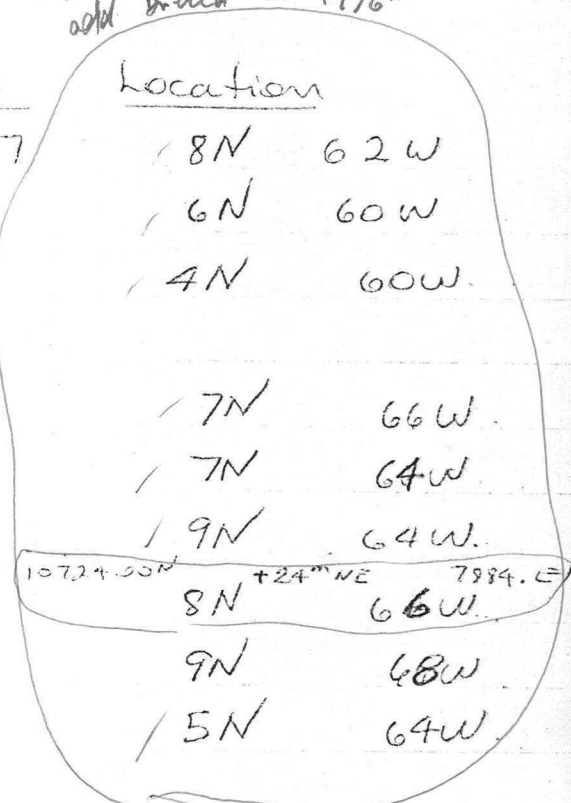 add
Location
7
/ 8N 62W
/ 6N 60W
/ 4N 60W.
/ 7N 66W.
/ 7N 64W
/ 9N 64W.
+24m NE 7984.E
8N 66W.
9N 68W
/ 5N 64W